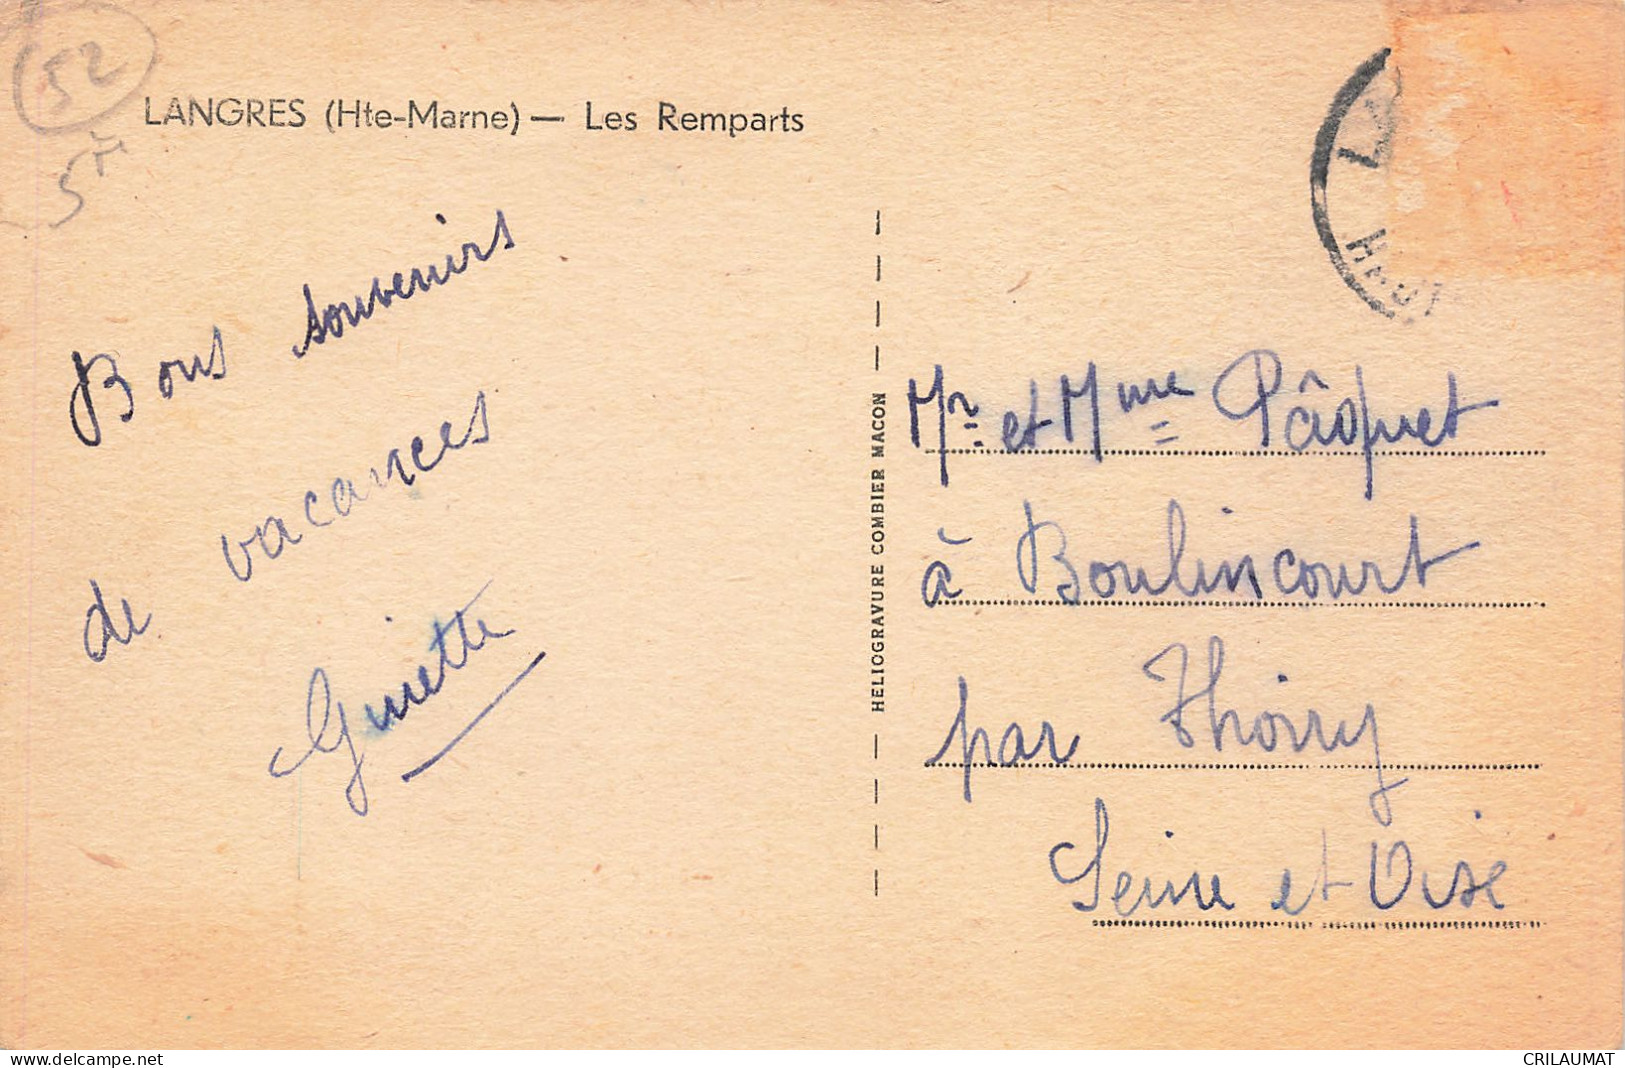 52
LANGRES (Hte-Marne) — Les Remparts
Bons souvenirs
de vacances
Ginette
HELIOGRAVURE COMBIER MACON
Mr et Mme Pâquet
à Boulincourt
par Thoiry
Seine et Oise
www.delcampe.net
CRILAUMAT